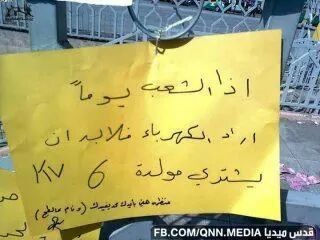 اذا الشعب يوماً
اراد الكهرباء فلابد ان
يشتري مولدة 6 KV
قدس ميديا FB.COM/QNN.MEDIA